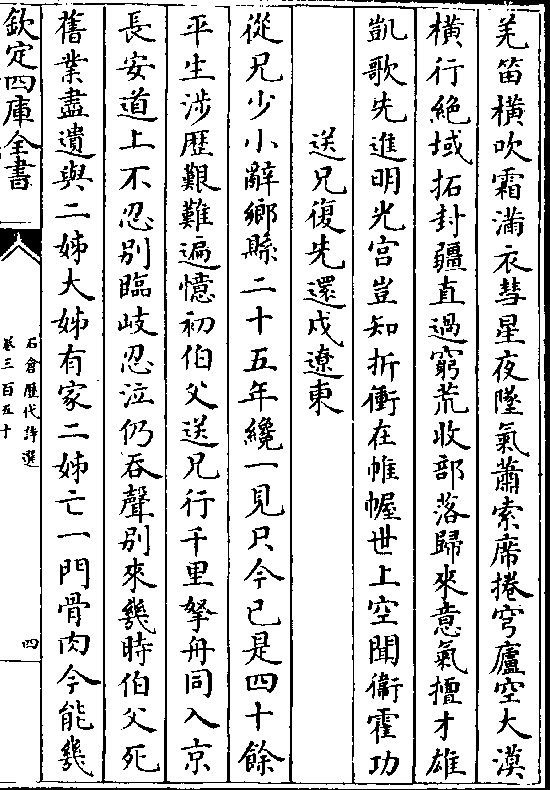 羌笛橫吹霜滿衣彗星夜墜氣蕭索席捲穹廬空大漠
橫行絶域拓封疆直過窮荒收部落歸來意氣擅才雄
凱歌先進明光宫豈知折衝在帷幄世上空聞衞霍功
送兄復先還戍遼東
從兄少小辭鄉縣二十五年纔一見只今已是四十餘
平生涉歷艱難遍憶初伯父送兄行千里拏舟同入京
長安道上不忍别臨岐忍泣仍吞聲别來幾時伯父死
舊業盡遺與二姊大姊有家二姊亡一門骨肉今能幾
欽定四庫全書
石倉歷代詩選
卷三百五十
四